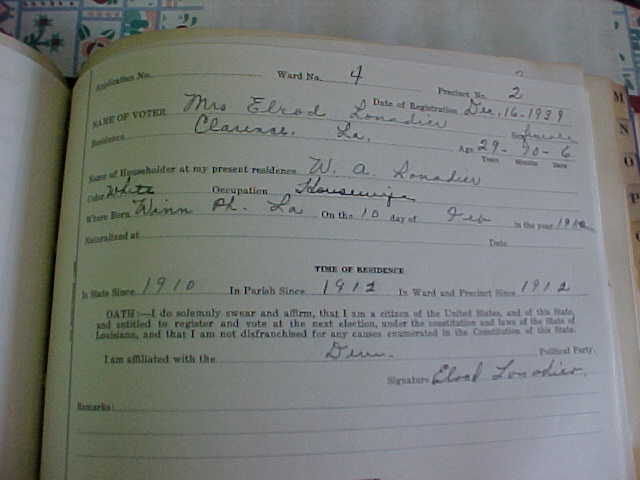 Application No. Ward No. 4 Precinct No. 2
Date of Registration Dec. 16-1939
NAME OF VOTER Mrs Elrod Lonadier Sex female
Residence Clarence. La. Age 29- 10- 6
Years Months Days
Name of Householder at my present residence W. A. Lonadier
Color White Occupation Housewife
Where Born Winn Ph. La On the 10 day of Feb in the year 1910
Naturalized at Date
TIME OF RESIDENCE
In State Since 1910 In Parish Since 1912 In Ward and Precinct Since 1912
OATH:—I do solemnly swear and affirm, that I am a citizen of the United States, and of this State,
and entitled to register and vote at the next election, under the constitution and laws of the State of
Louisiana, and that I am not disfranchised for any causes enumerated in the Constitution of this State.
I am affiliated with the Dem. Political Party.
Signature Elrod Lonadier.
Remarks:
M
N
O
P